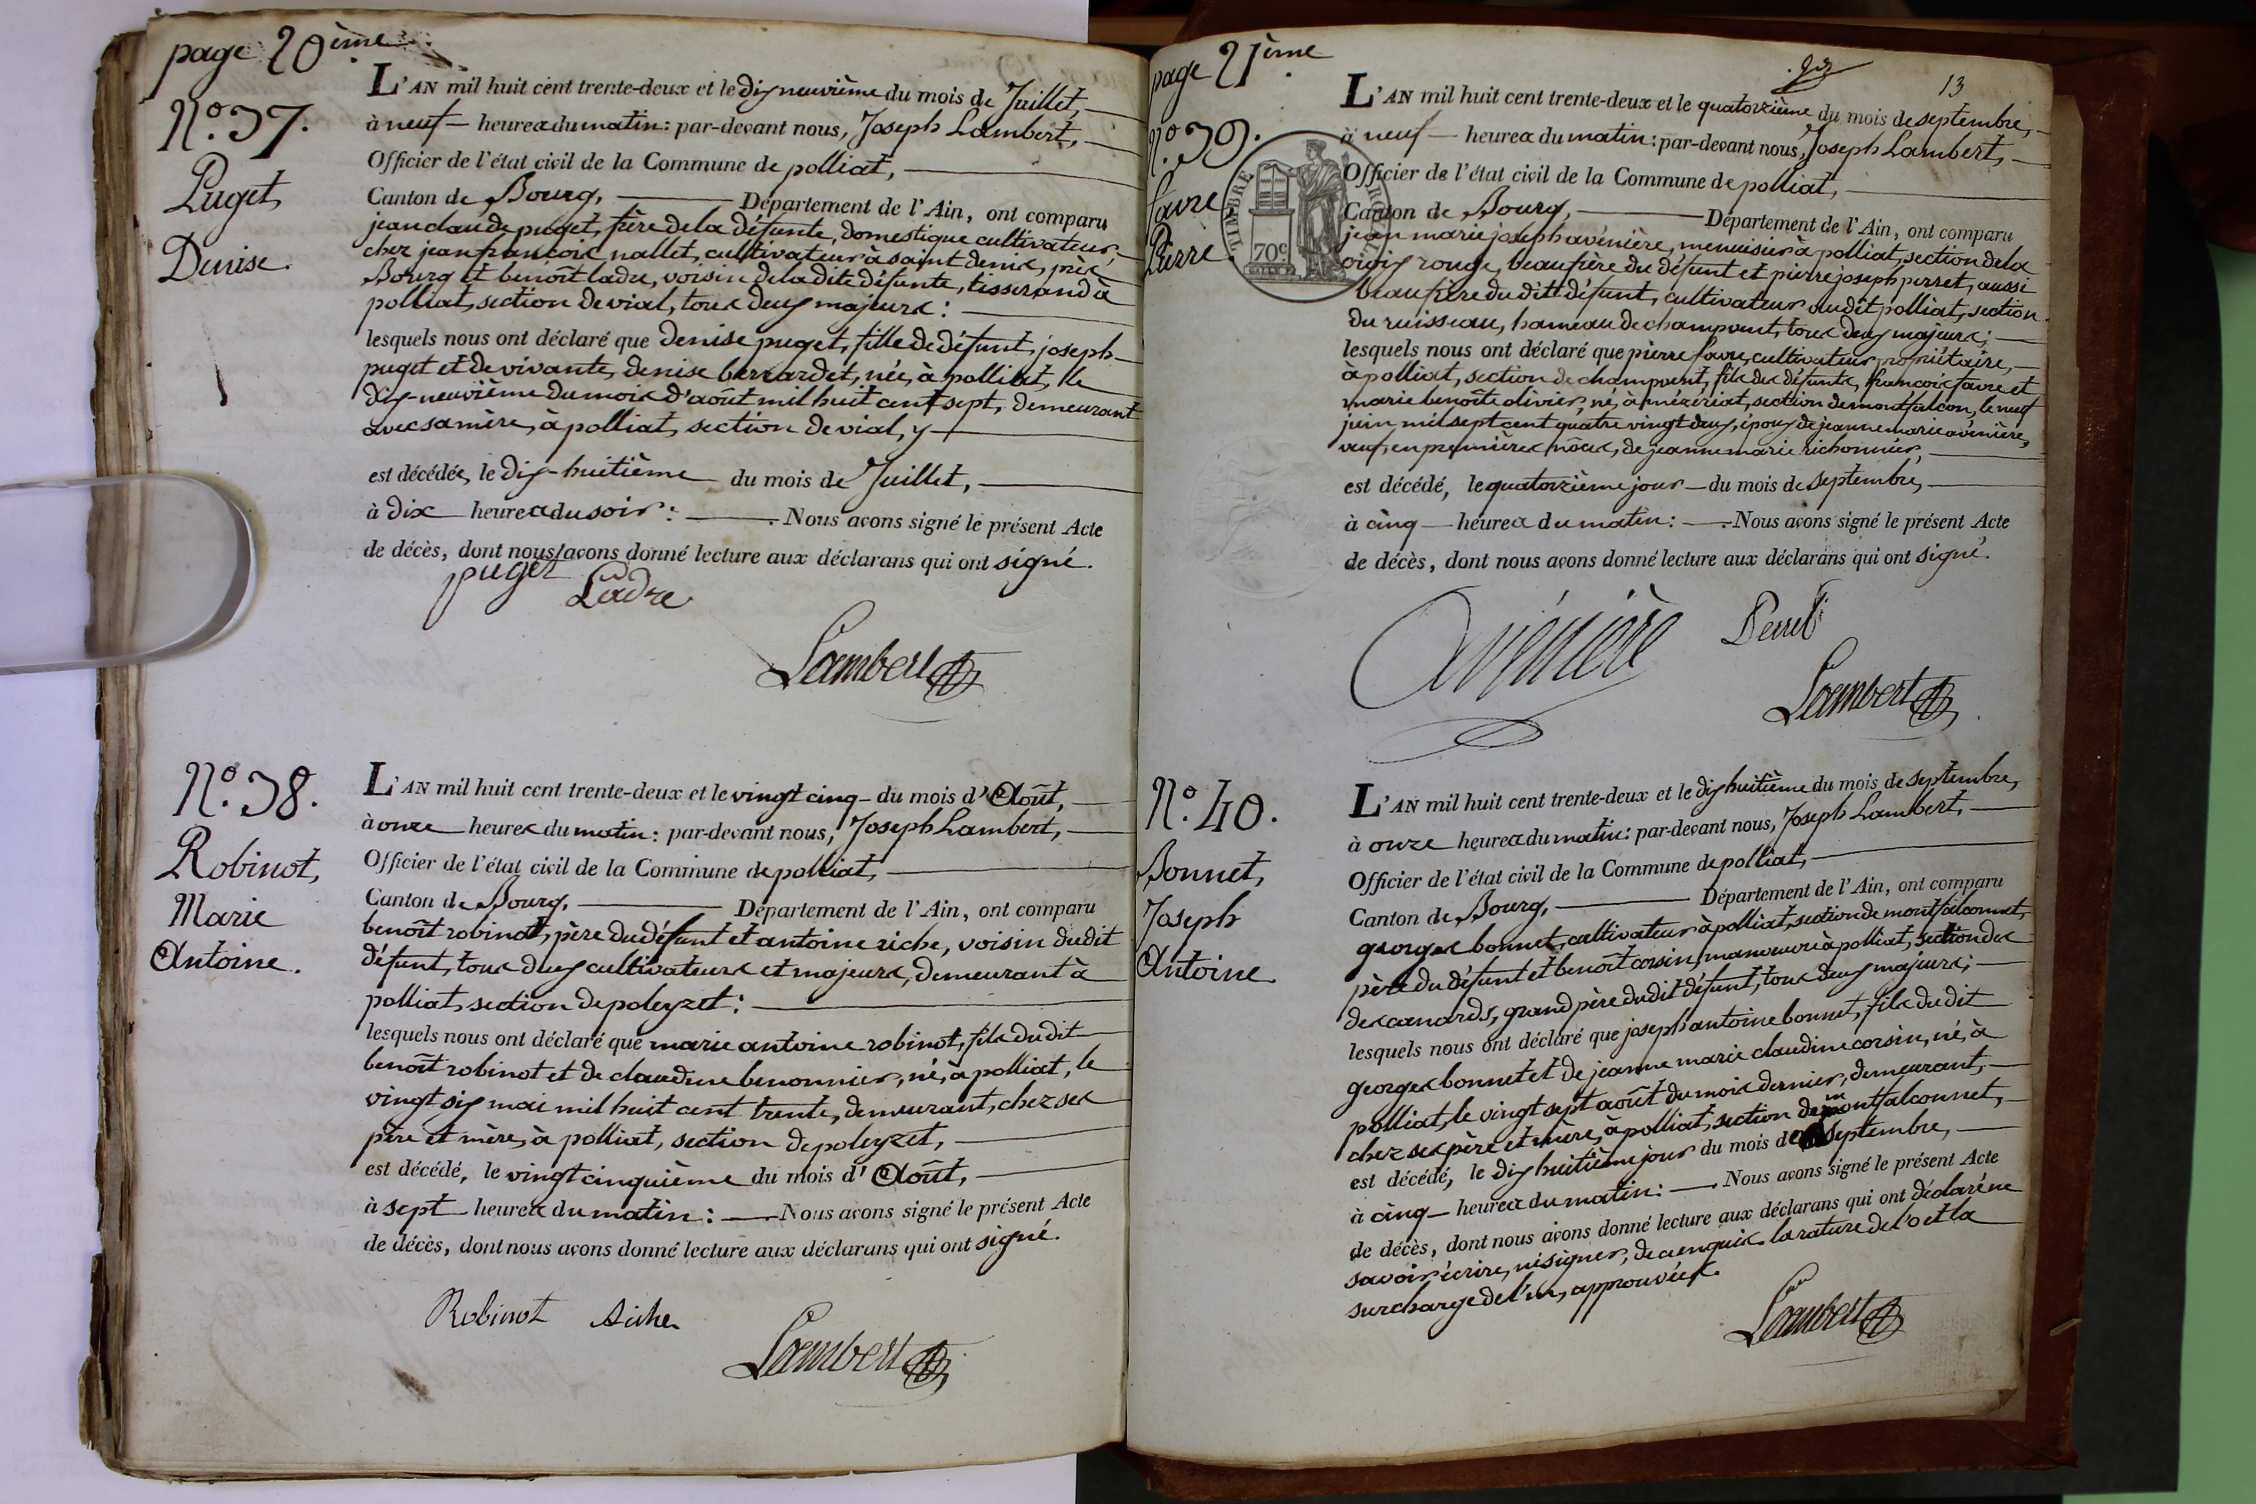 page 20ème.
N.º 37.
Puget,
Denise.
L'AN mil huit cent trente-deux et le dix neuvième du mois de Juillet,
à neuf heures du matin: par-devant nous, Joseph Lambert,
Officier de l'état civil de la Commune de polliat,
Canton de Bourg, Département de l'Ain, ont comparu
jean claude puget, frère de la défunte, domestique cultivateur,
chez jean francois nallet, cultivateur à saint denis, près
Bourg et benoît ladre, voisin de la dite défunte, tisserand à
polliat, section de vial, tous deux majeurs:
lesquels nous ont déclaré que denise puget, fille de défunt, joseph
puget et de vivante, denise berrardet, née, à polliat, le
dix-neuvième du mois d'août mil huit cent sept, demeurant
avec sa mère, à polliat, section de vial, y
est décédée, le dix-huitième du mois de Juillet,
à dix heures du soir: Nous avons signé le présent Acte
de décès, dont nous avons donné lecture aux déclarans qui ont signé.
puget Ladre
Lambert
N.º 38.
Robinot,
Marie
Antoine.
L'AN mil huit cent trente-deux et le vingt cinq du mois d'Août,
à onze heures du matin: par-devant nous, Joseph Lambert,
Officier de l'état civil de la Commune de polliat,
Canton de Bourg, Département de l'Ain, ont comparu
benoît robinot, père du défunt et antoine riche, voisin du dit
défunt, tous deux cultivateurs et majeurs, demeurant à
polliat, section de poleyzet:
lesquels nous ont déclaré que marie antoine robinot, fils du dit
benoît robinot et de claudine benonnier, né, à polliat, le
vingt six mai mil huit cent trente, demeurant, chez ses
père et mère, à polliat, section de poleyzet,
est décédé, le vingt cinquième du mois d'Août,
à sept heures du matin: Nous avons signé le présent Acte
de décès, dont nous avons donné lecture aux déclarans qui ont signé.
Robinot Riche
Lambert
page 21ème.
13
N.º 39.
favre,
Pierre.
TIMBRE ROYAL
70c
L'AN mil huit cent trente-deux et le quatorzième du mois de septembre,
à neuf heures du matin: par-devant nous, Joseph Lambert,
Officier de l'état civil de la Commune de polliat,
Canton de Bourg, Département de l'Ain, ont comparu
jean marie joseph avénière, menuisier à polliat, section de la
croix rouge, beaufrère du défunt et pierre joseph perret, aussi
beaufrère du dit défunt, cultivateur au dit polliat, section
du ruisseau, hameau de champvent, tous deux majeurs;
lesquels nous ont déclaré que pièrre favre, cultivateur propriétaire,
à polliat, section de champvent, fils des défunts, françois favre et
marie benoîte olivier, né, à mézériat, section de montfalcon, le neuf
juin, mil sept cent quatre vingt deux, époux de jeanne marie avénière,
veuf, en premières nôces, de jeanne marie richonnier,
est décédé, le quatorzième jour du mois de septembre,
à cinq heures du matin: Nous avons signé le présent Acte
de décès, dont nous avons donné lecture aux déclarans qui ont signé.
Avénière Perret
Lambert
N.º 40.
Bonnet,
Joseph
Antoine.
L'AN mil huit cent trente-deux et le dix huitième du mois de septembre,
à onze heures du matin: par-devant nous, Joseph Lambert,
Officier de l'état civil de la Commune de polliat,
Canton de Bourg, Département de l'Ain, ont comparu
georges bonnet, cultivateur à polliat, section de montfalconnet,
père du défunt et benoît corsin, manoeuvre à polliat, section des
des canards, grand père du dit défunt, tous deux majeurs;
lesquels nous ont déclaré que joseph antoine bonnet, fils du dit
georges bonnet et de jeanne marie claudine corsin, né, à
polliat, le vingt sept août du mois dernier, demeurant,
chez ses père et mère, à polliat, section de montfalconnet,
est décédé, le dix huitième jour du mois de septembre,
à cinq heures du matin: Nous avons signé le présent Acte
de décès, dont nous avons donné lecture aux déclarans qui ont déclaré ne
savoir écrire, ni signer, de ce enquis. la rature de l'o et la
surcharge de l'm, approuvées.
Lambert